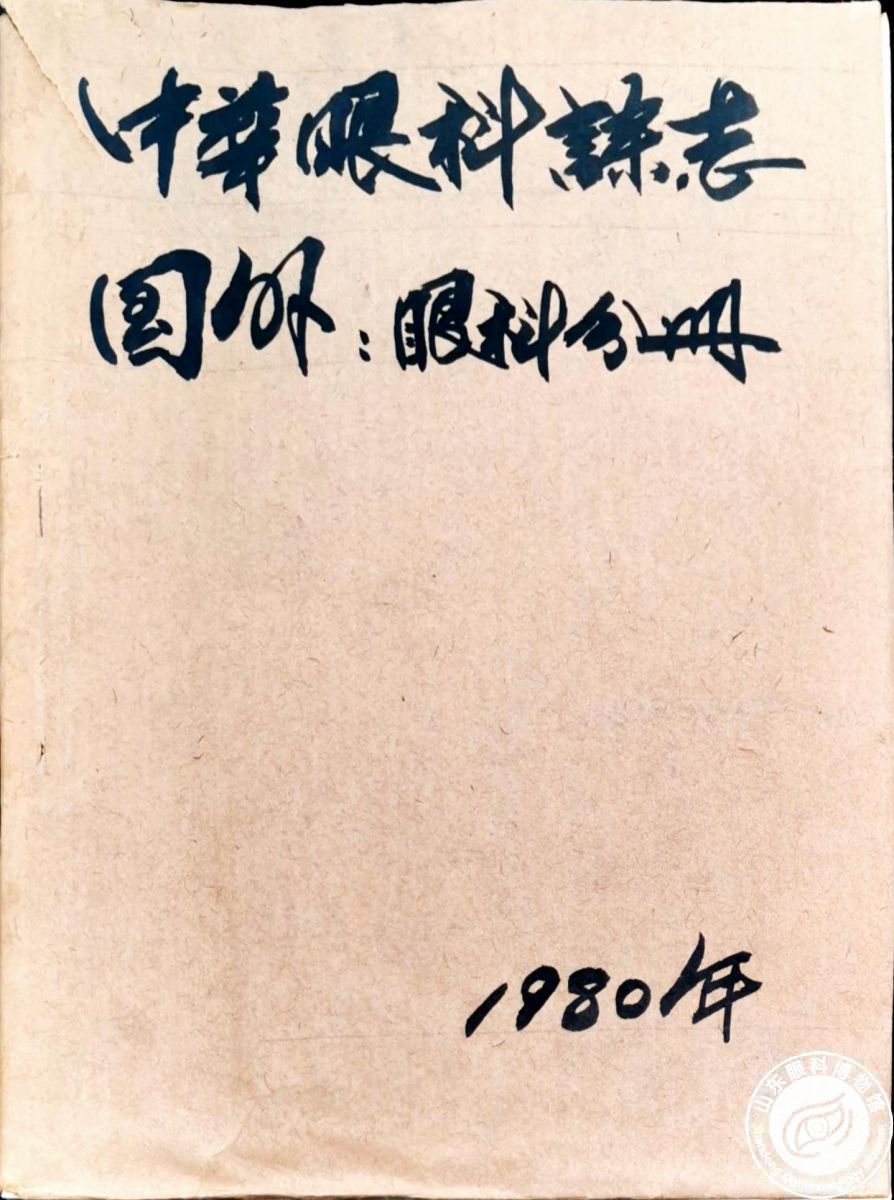 中华眼科杂志
国外:眼科分册
1980年
山东眼科博物馆